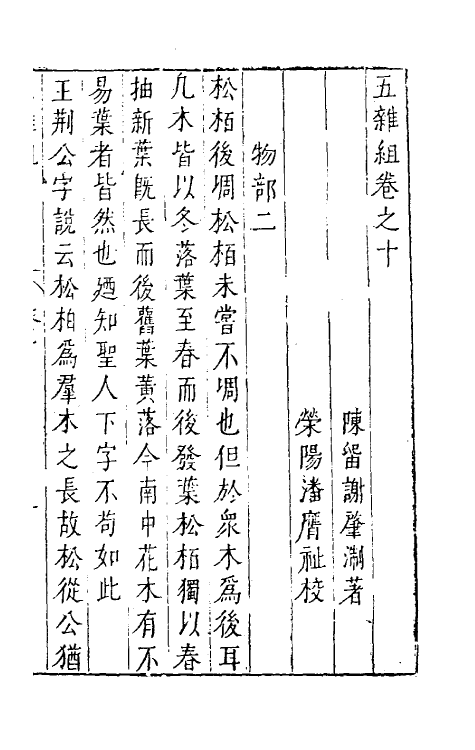 五雜組卷之十
陳留謝肇淛著
滎陽潘膺祉校
物部二
松栢後凋松栢未嘗不凋也但於衆木爲後耳
凡木皆以冬落葉至春而後發葉松栢獨以春
抽新葉旣長而後舊葉黃落今南中花木有不
易葉者皆然也廼知聖人下字不苟如此
王荆公字說云松柏爲羣木之長故松從公猶